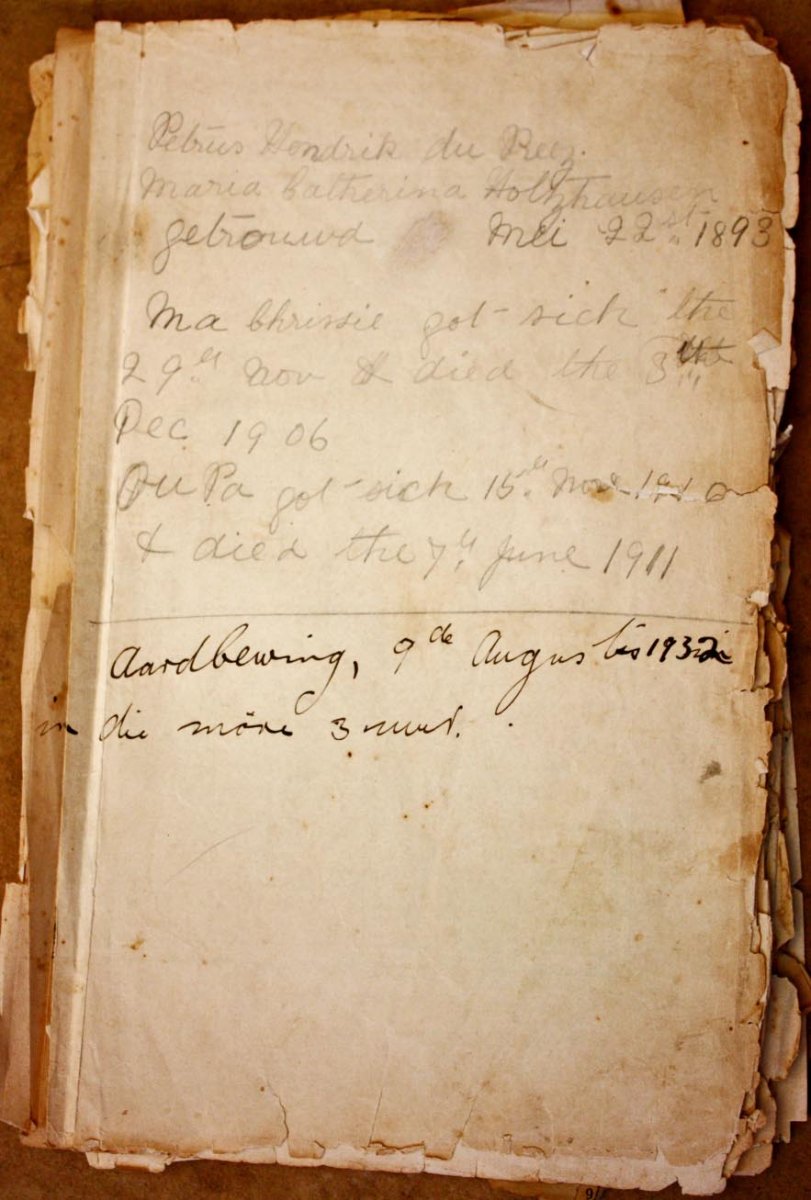 Petrus Hendrik du Preez.
Maria Catherina Holtzhausen
getrouwd Mei 22st. 1893
Ma Chrissie got sick the
29th Nov & died the 3th
Dec 1906
Ou Pa got sick 15th Nov 1910
& died the 7th June 1911
Aardbewing, 9de Augustus 1932
in die môre 3 uur.